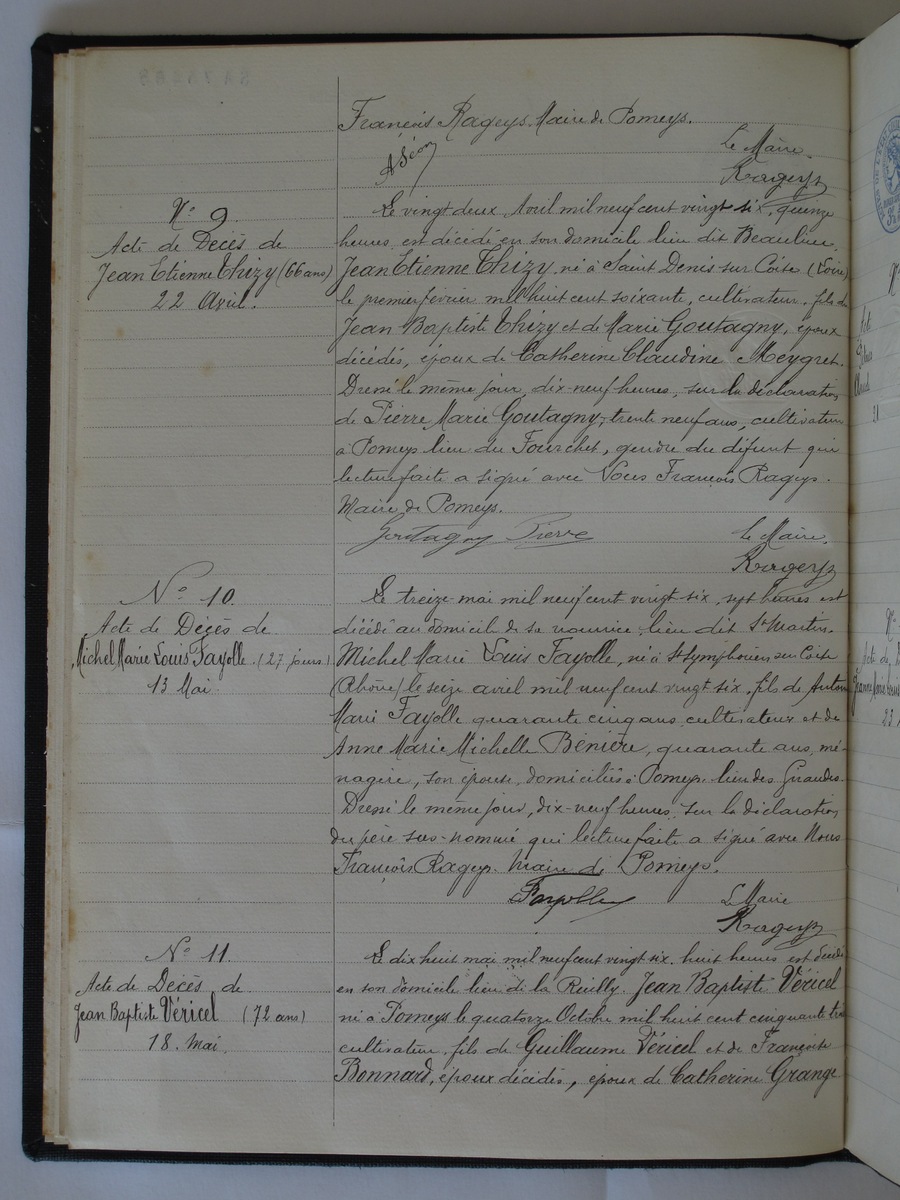 François Rageys. Maire de Pomeys.
Le Maire.
Rageys
N° 9.
Acte de Décès de
Jean Etienne Thizy (66 ans)
22 Avril.
Le vingt deux Avril mil neuf cent vingt six, quinze
heures, est décédé en son domicile lieu dit Beaulieu.
Jean Etienne Thizy, né à Saint Denis sur Coise (Loire)
le premier février mil huit cent soixante, cultivateur, fils de
Jean Baptiste Thizy et de Marie Goutagny, époux
décédés, époux de Catherine Claudine Meygret.
Dressé le même jour, dix-neuf heures, sur la déclaration
de Pierre Marie Goutagny, trente neuf ans, cultivateur
à Pomeys lieu du Fourchet, gendre du défunt qui
lecture faite a signé avec Nous François Rageys.
Maire de Pomeys.
Goutagny Pierre
Le Maire,
Rageys
N° 10.
Acte de Décès de
Michel Marie Louis Fayolle. (27 jours)
13 Mai.
Le treize mai mil neuf cent vingt-six, sept heures est
décédé au domicile de sa nourrice, lieu dit St Martin.
Michel Marie Louis Fayolle, né à St Symphorien sur Coise
(Rhône) le seize avril mil neuf cent vingt six, fils de Antoine
Marie Fayolle quarante cinq ans, cultivateur et de
Anne Marie Michelle Bénière, quarante ans, mé-
nagère, son épouse, domiciliés à Pomeys lieu des
Dressé le même jour, dix-neuf heures, sur la déclaration
du père sus-nommé qui lecture faite a signé avec Nous
François Rageys. Maire de Pomeys.
Fayolle
Le Maire
Rageys
N° 11.
Acte de Décès de
Jean Baptiste Véricel (72 ans)
18. Mai.
Le dix huit mai mil neuf cent vingt six. huit heures est décédé
en son domicile lieu de la Reuilly. Jean Baptiste Véricel
né à Pomeys le quatorze Octobre mil huit cent cinquante trois
cultivateur, fils de Guillaume Véricel et de Françoise
Bonnard, époux décédés, époux de Catherine Grange